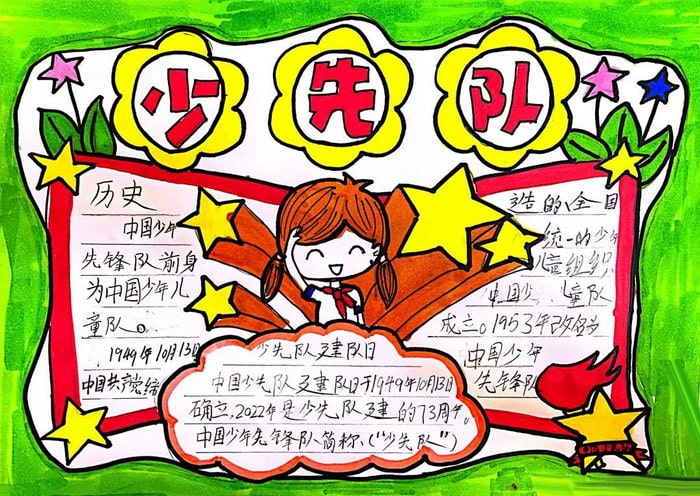 少先队
历史
中国少年
先锋队前身
为中国少年儿
童队。
1949年10月13日
中国共产党缔
造的、全国
统一的少年
儿童组织
中国少、儿童队
成立。1953年改名为
中国少年
先锋队
少先队建队日
中国少先队建队日于1949年10月13日
确立,2022年是少先队建的73周年。
中国少年先锋队简称、("少先队")